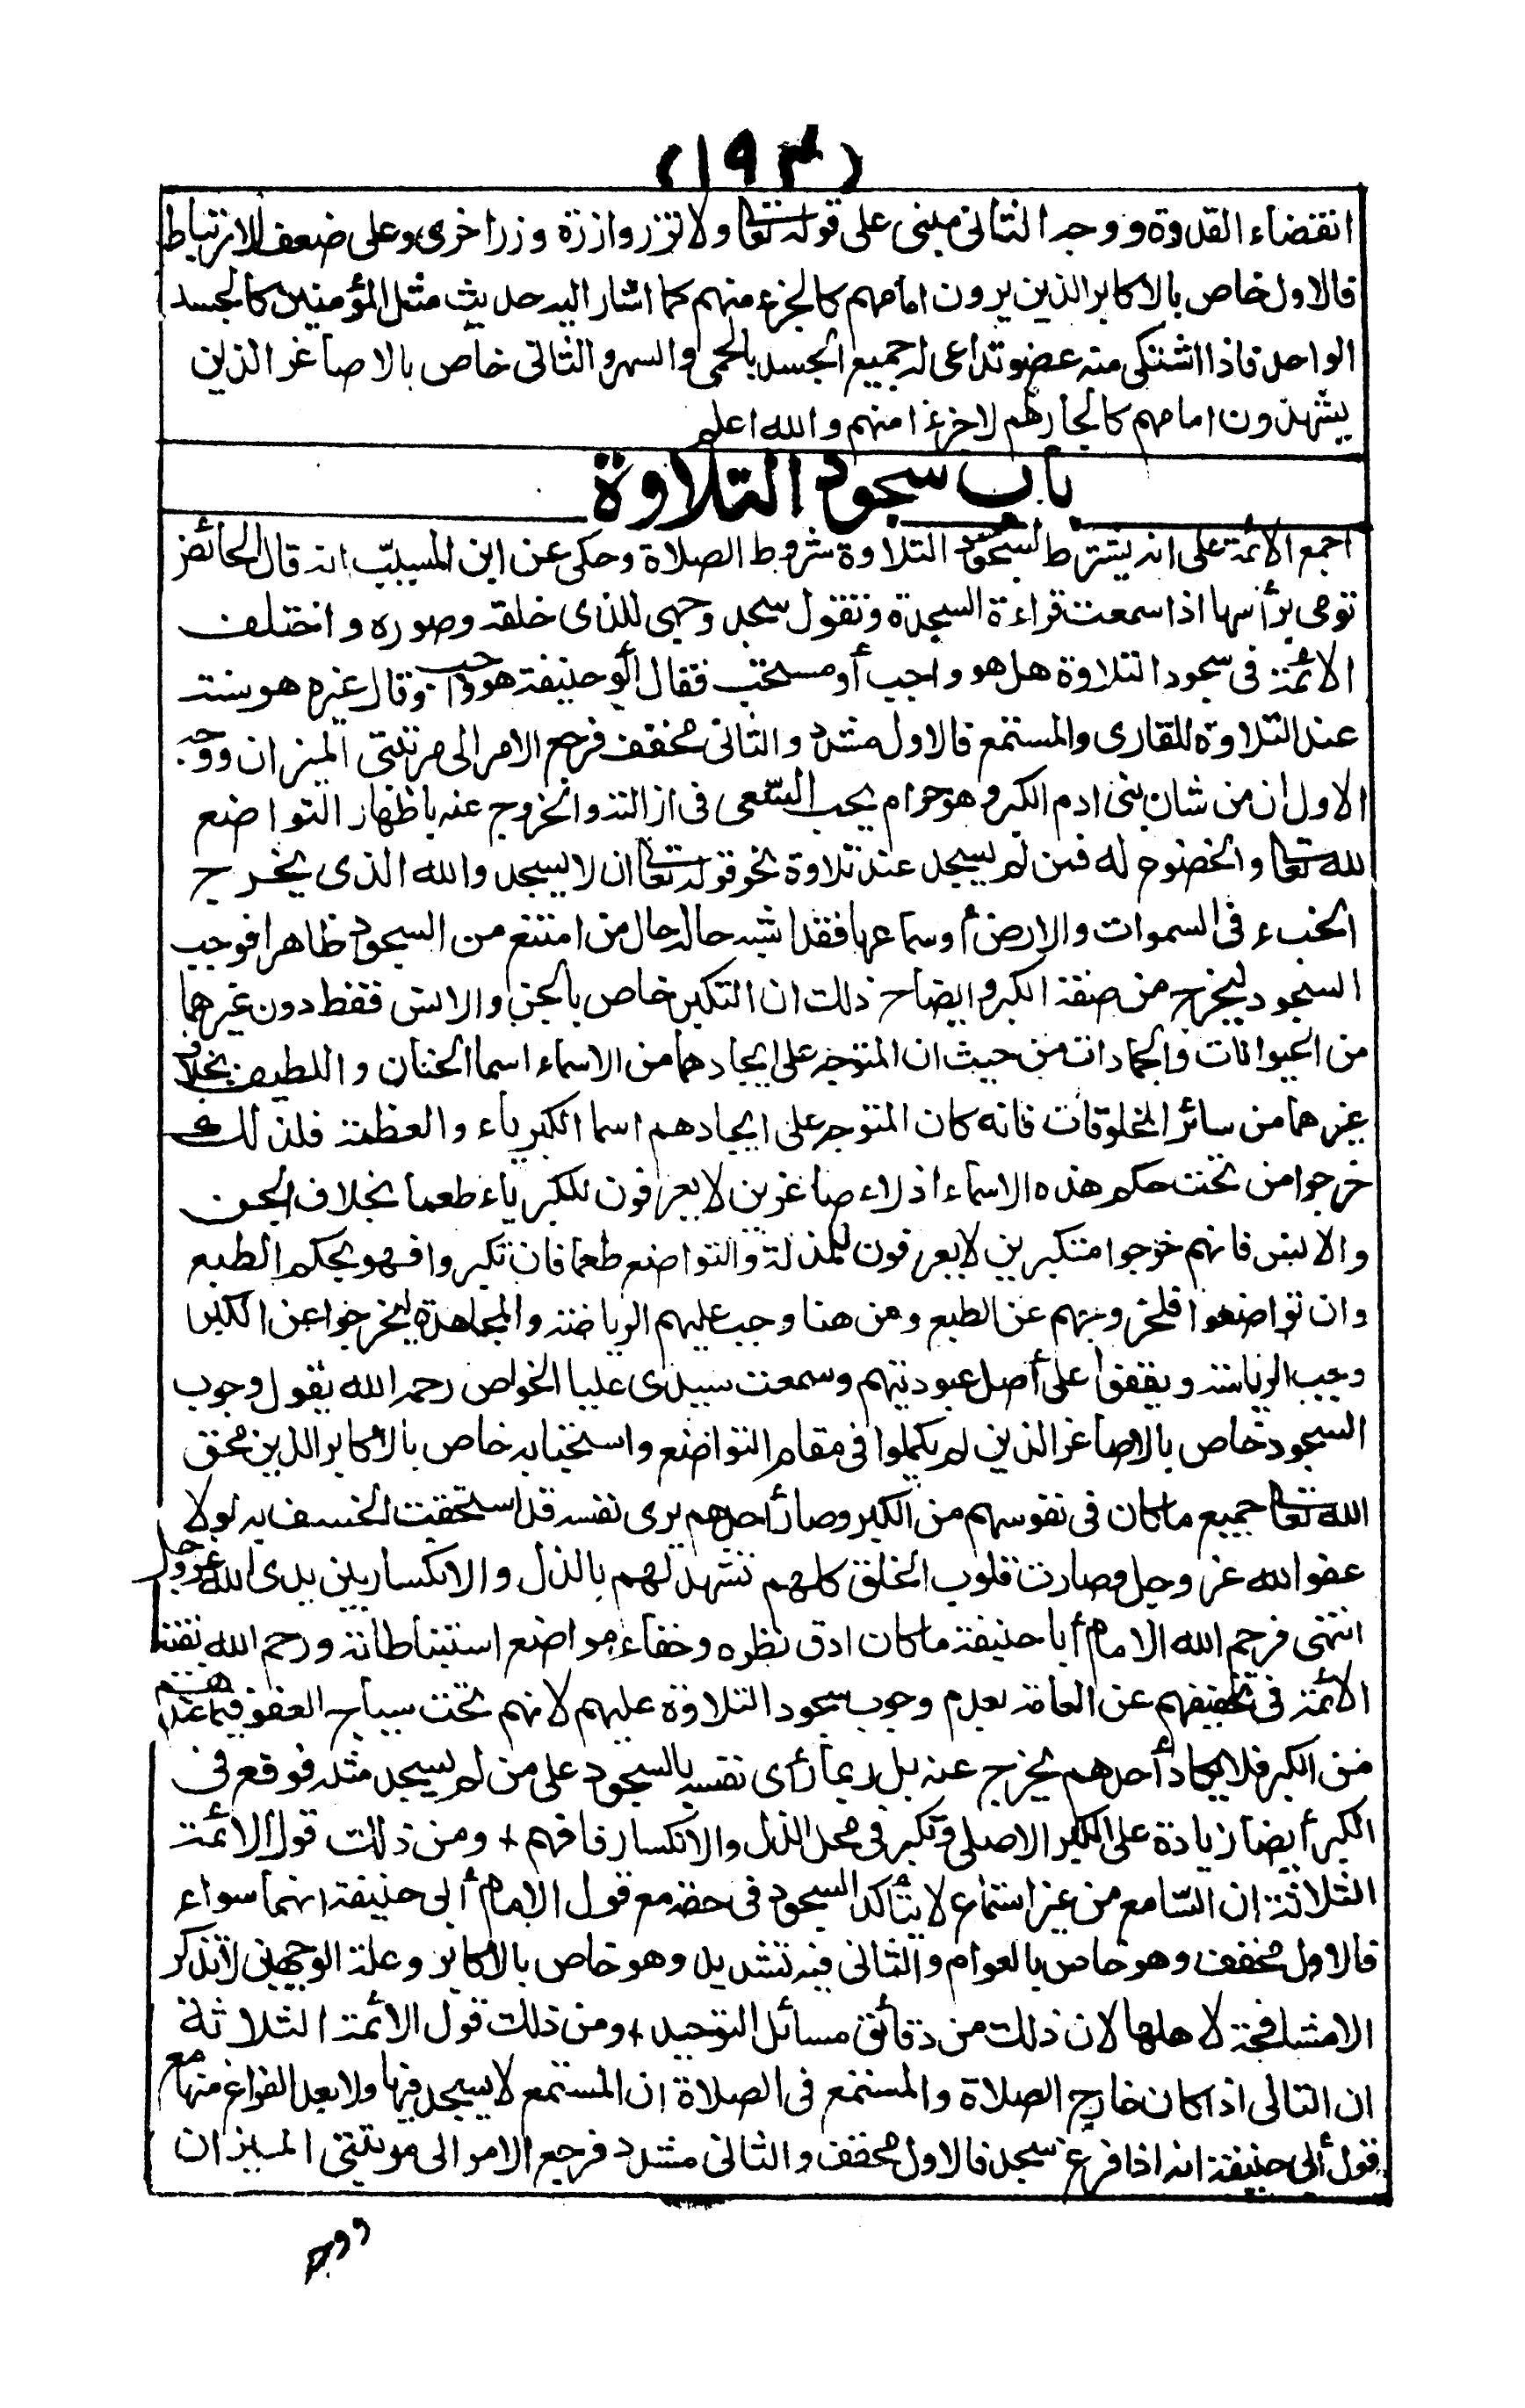 (١٩٣)
انقضاء القدوة ووجه الثانى مبنى على قوله تعا ولا تزر وازرة وزر اخرى وعلى ضعف الارتباط
فالاول خاص بالاكابر الذين يرون امامهم كالجزء منهم كما اشار اليه حديث مثل المؤمنين كالجسد
الواحد فاذا اشتكى منه عضو تداعى له جميع الجسد بالحمى والسهر والثانى خاص بالاصاغر الذين
يشهدون امامهم كالجار لهم لا جزءا منهم والله اعلم
باب سجود التلاوة
اجمع الائمة على انه يشترط لسجود التلاوة شروط الصلاة وحكى عن ابن المسيب انه قال الحائض
تومى برأسها اذا سمعت قراءة السجدة وتقول سجد وجهى للذى خلقه وصوره واختلف
الائمة فى سجود التلاوة هل هو واجب أو مستحب فقال أبو حنيفة هو واجب وقال غيره هو سنة
عند التلاوة للقارى والمستمع فالاول مشدد والثانى مخفف فرجع الامر الى مرتبتى الميزان ووجه
الاول ان من شان بنى ادم الكبر وهو حرام يجب السعى فى ازالته والخروج عنه باظهار التواضع
لله تعا والخضوع له فمن لم يسجد عند تلاوة نحو قوله تعا ان لا يسجد والله الذى يخرج
الخبء فى السموات والارض أو سماعها فقد اشبه حاله حال من امتنع من السجود ظاهرا فوجب
السجود ليخرج من صفة الكبر وايضاح ذلك ان التكبر خاص بالجن والانس فقط دون غيرهما
من الحيوانات والجمادات من حيث ان المتوجه على ايجادهما من الاسماء اسما الحنان واللطيف بخلاف
غيرهما من سائر المخلوقات فانه كان المتوجه على ايجادهم اسما الكبرياء والعظمة فلذلك
خرجوا من تحت حكم هذه الاسماء اذلاء صاغرين لا يعرفون للكبرياء طعما بخلاف الجن
والانس فانهم خرجوا متكبرين لا يعرفون للمذلة والتواضع طعما فان تكبروا فهو بحكم الطبع
وان تواضعوا فلخروجهم عن الطبع ومن هنا وجب عليهم الرياضة والمجاهدة ليخرجوا عن الكبر
وحب الرياسة ويقفوا على أصل عبوديتهم وسمعت سيدى عليا الخواص رحمه الله يقول وجوب
السجود خاص بالاصاغر الذين لم يكملوا فى مقام التواضع واستحبابه خاص بالاكابر الذين محق
الله تعا جميع ما كان فى نفوسهم من الكبر وصار أحدهم يرى نفسه قد استحقت الخسف به لولا
عفو الله عز وجل وصارت قلوب الخلق كلهم تشهد لهم بالذل والانكسار بين يدى الله عز وجل
انتهى فرحم الله الامام أبا حنيفة ما كان ادق نظره وخفاء مواضع استنباطاته ورحم الله بقية
الائمة فى تخفيفهم عن العامة بعدم وجوب سجود التلاوة عليهم لانهم تحت سياج العفو فيما عندهم
من الكبر فلا يكاد أحدهم يخرج عنه بل ربما رأى نفسه بالسجود على من لم يسجد مثله فوقع فى
الكبر أيضا زيادة على الكبر الاصلى فتكبر فى محل الذل والانكسار فافهم + ومن ذلك قول الائمة
الثلاثة ان السامع من غير استماع لا يتأكد السجود فى حقه مع قول الامام أبى حنيفة انهما سواء
فالاول مخفف وهو خاص بالعوام والثانى فيه تشديد وهو خاص بالاكابر وعلة الوجهين لا تذكر
الا مشافهة لاهلها لان ذلك من دقائق مسائل التوحيد + ومن ذلك قول الائمة الثلاثة
ان التالى اذا كان خارج الصلاة والمستمع فى الصلاة ان المستمع لا يسجد فيها ولا بعد الفراغ منها مع
قول أبى حنيفة انه اذا فرغ سجد فالاول مخفف والثانى مشدد فرجع الامر الى مرتبتى الميزان
ووجه